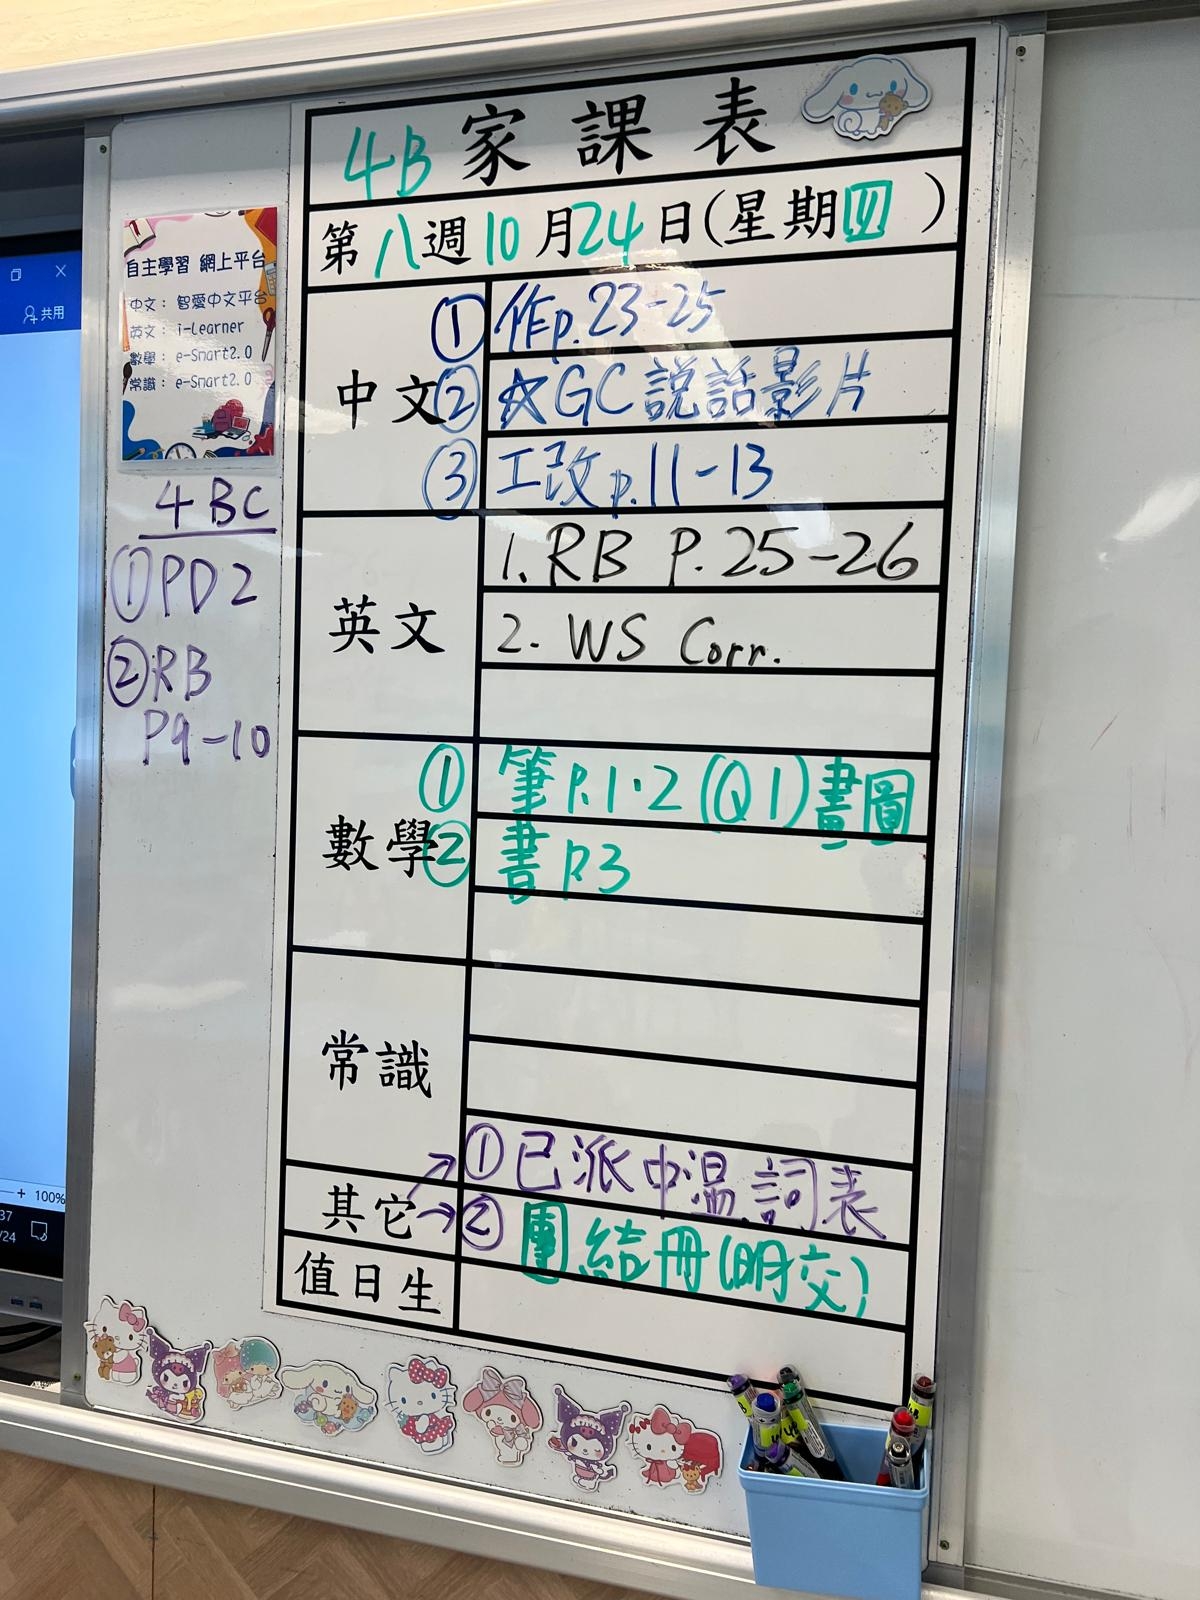 4B家課表
第八週10月24日(星期四)
中文
① 作p.23-25
② ☆GC説話影片
③ 工改p.11-13
英文
1. RB P.25-26
2. WS Corr.
數學
① 筆P.1·2(Q1)畫圖
② 書P.3
常識
其它
→①已派中温詞表
→② 團結冊(明交)
值日生
自主學習 網上平台
中文：智愛中文平台
英文：i-Learner
數學：e-Smart2.0
常識：e-Smart2.0
4BC
①PD2
②RB
P9-10
共用
100%
37
/24